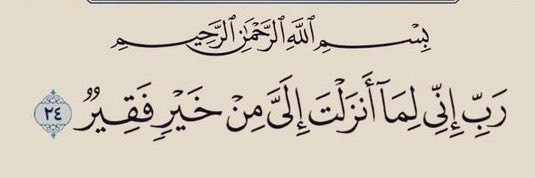 بِسْمِ ٱللَّهِ ٱلرَّحْمَٰنِ ٱلرَّحِيمِ
رَبِّ إِنِّى لِمَآ أَنزَلْتَ إِلَىَّ مِنْ خَيْرٍ فَقِيرٌ ٢٤